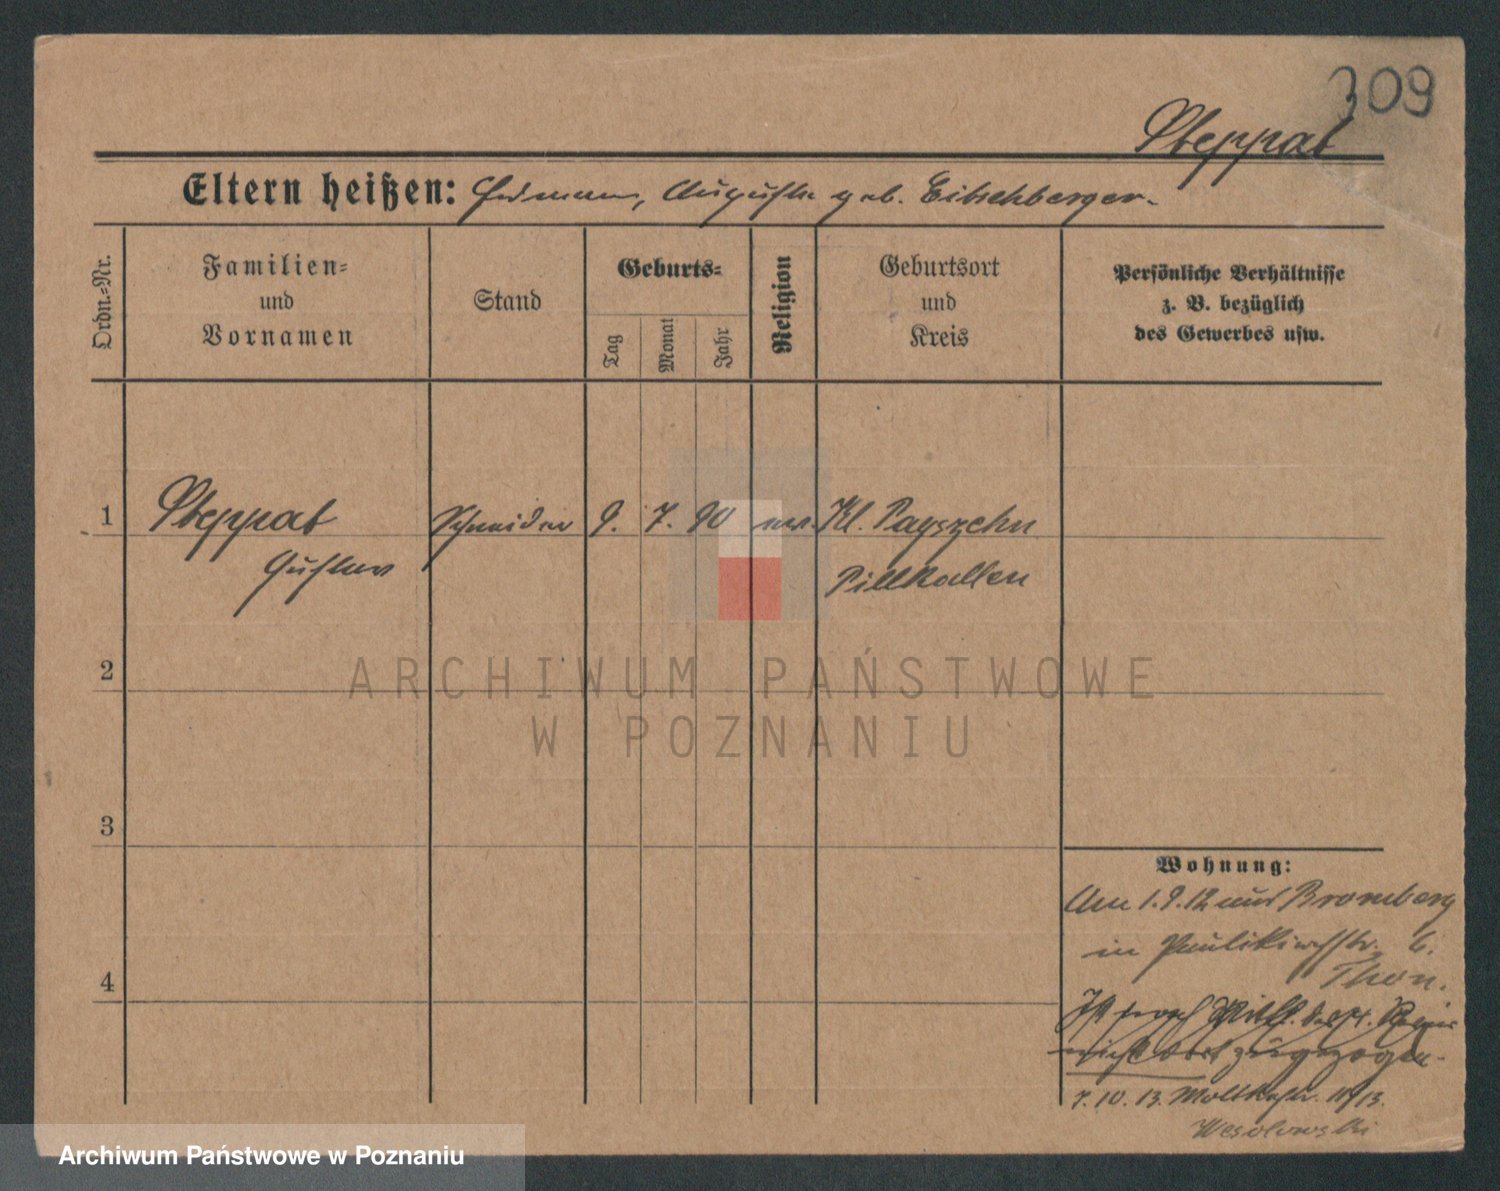 309
Steppat
Eltern heißen: Hermann, Auguste geb. Eibschberger.
Ordn.-Nr.
Familien-
und
Vornamen
Stand
Geburts-
Tag
Monat
Jahr
Religion
Geburtsort
und
Kreis
Persönliche Verhältnisse
z. B. bezüglich
des Gewerbes usw.
1 Steppat Schneider 9. 7. 90 ev. Kl.
Gustav Pillkallen
2
3
4
Wohnung:
Am 1.9.12 aus Bromberg
in Paulikirchstr. 6.
Thon.
Ist nach
nicht dort zugezogen.
7.10.13. Moltkestr. 11/13.
Wesolowski
ARCHIWUM PAŃSTWOWE
W POZNANIU
Archiwum Państwowe w Poznaniu